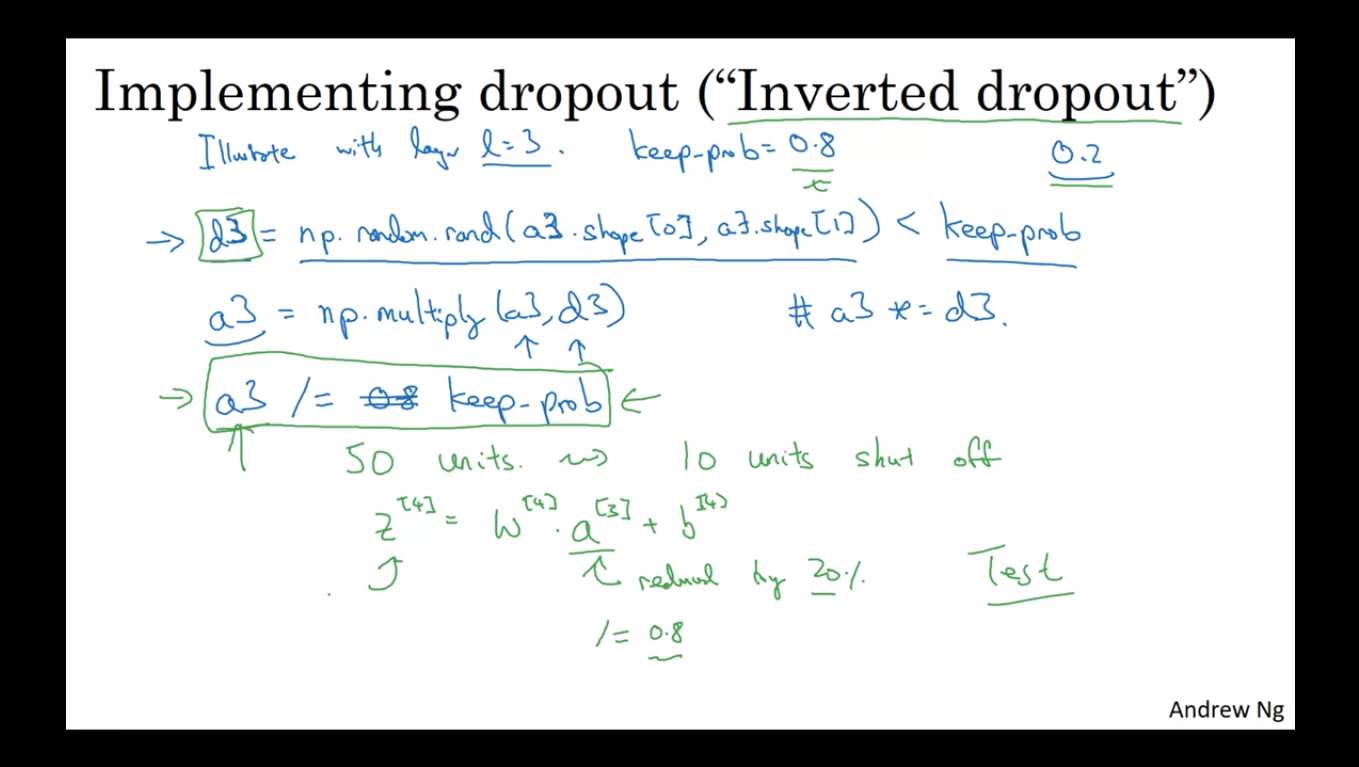 Implementing dropout (“Inverted dropout”)
Illustrate with layer l=3. keep-prob= 0.8 0.2
→ d3 = np.random.rand(a3.shape[0], a3.shape[1]) < keep-prob
a3 = np.multiply(a3, d3) # a3 *= d3.
↑ ↑
→ a3 /= 0.8 keep-prob ←
50 units. ⟿ 10 units shut off
z^[4] = W^[4] · a^[3] + b^[4]
reduced by 20%. Test
/= 0.8
Andrew Ng